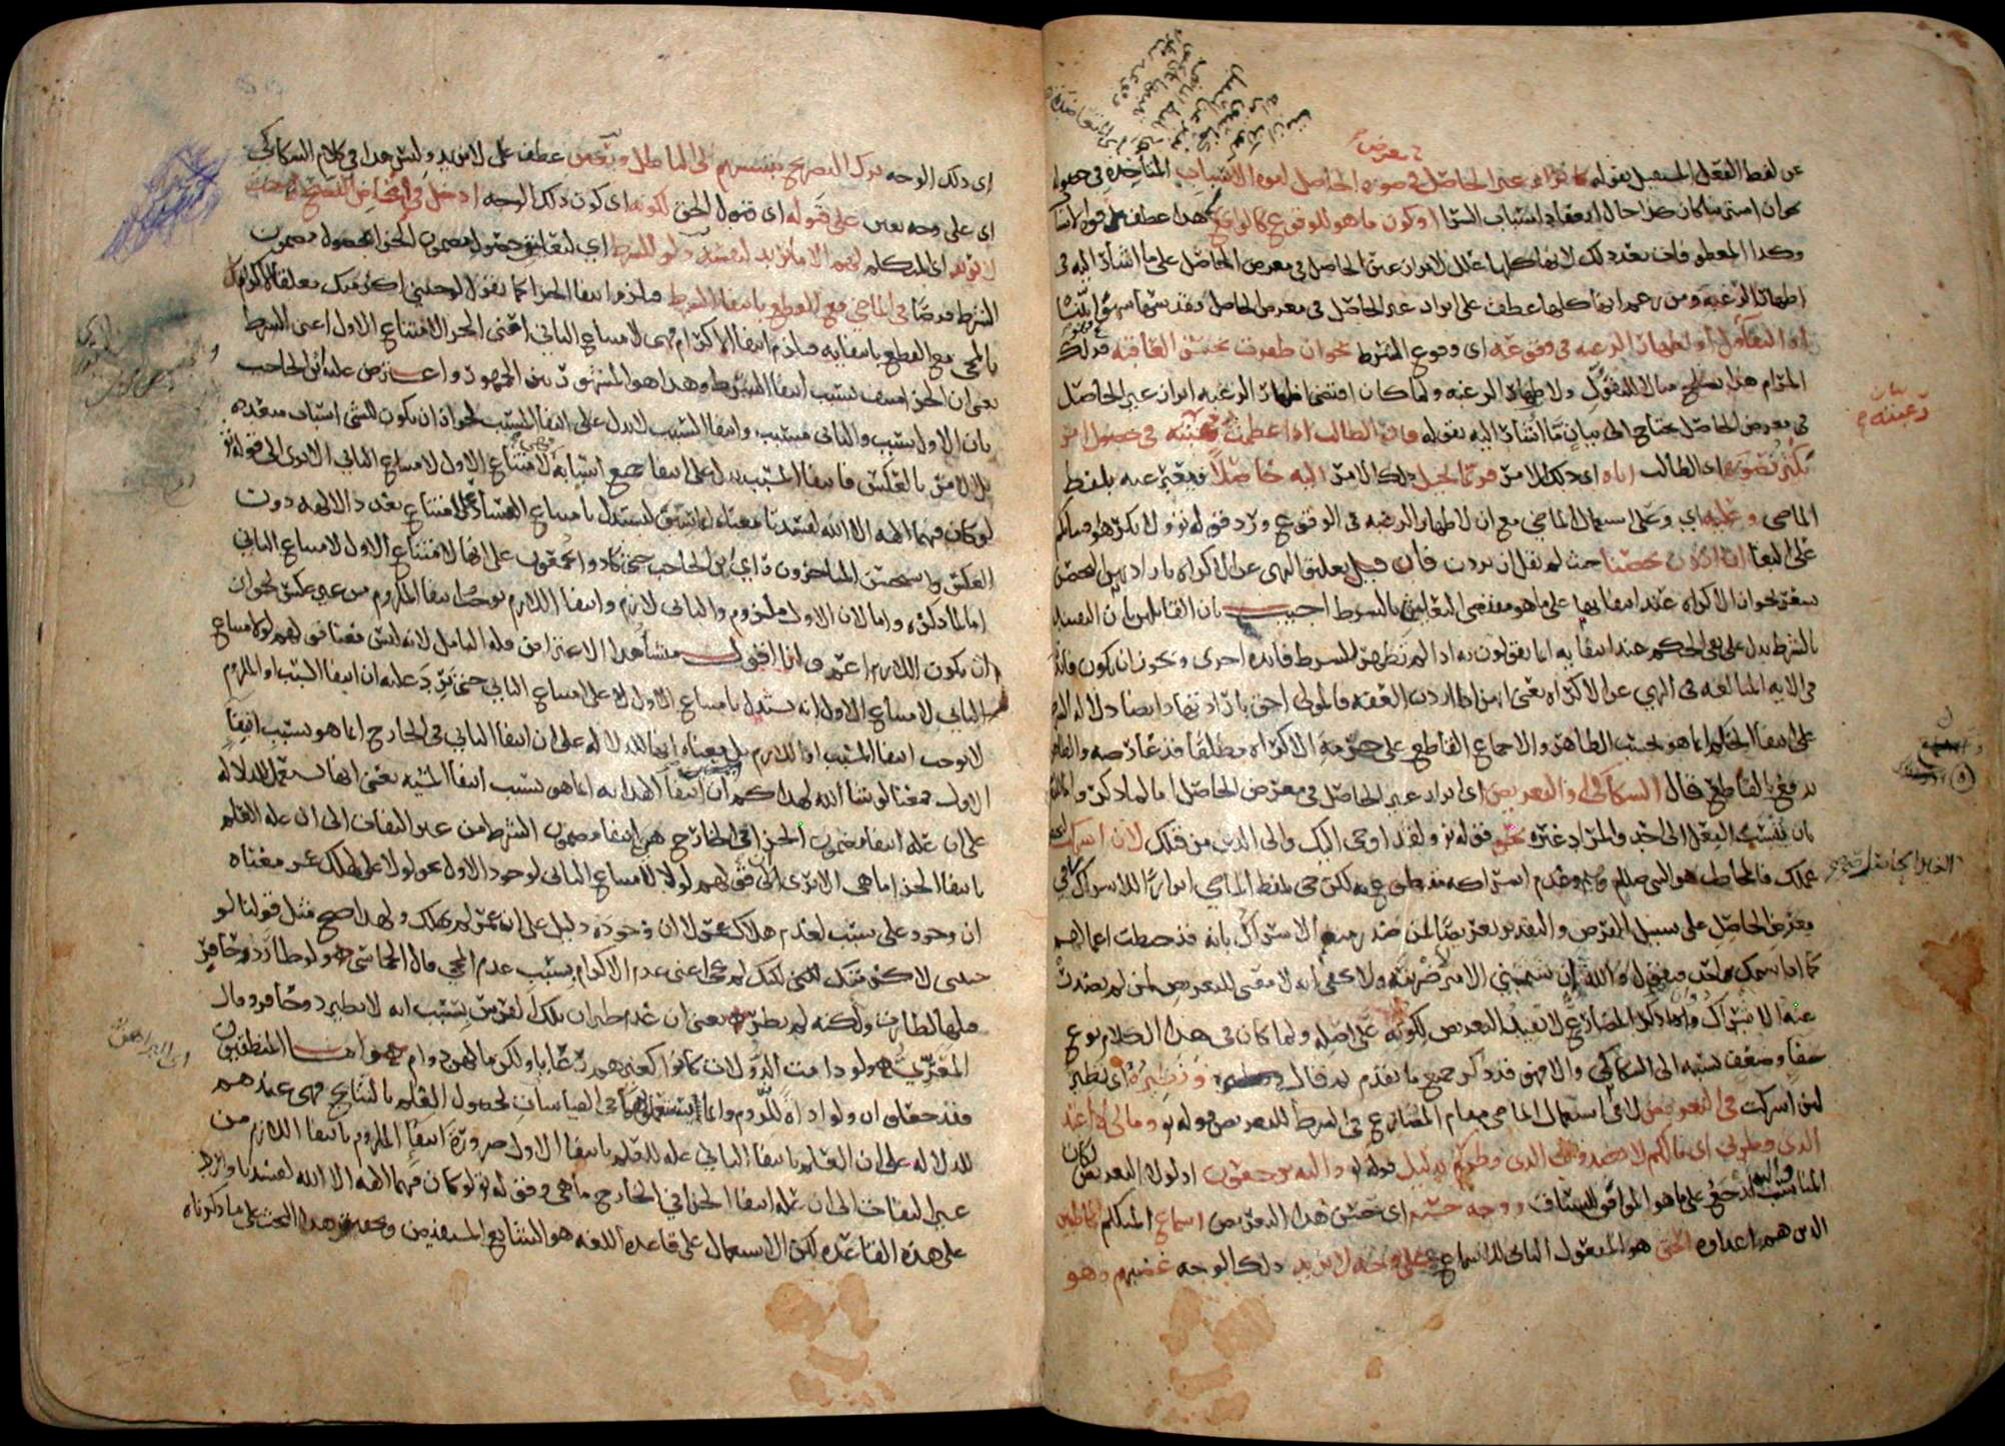 عن لفظ الفعل المستقبل بقوله كابراز غير الحاصل في صورة الحاصل لقوة الاسباب المتاخذة في حصوله
نحو ان اشترينا كان كذا حال انعقاد اسباب الشرا او كون ما هو للوقوع كالواقع هذا عطف على قوة الاسباب
وكذا المعطوفات بعد ذلك لانها كلها علل لابراز غير الحاصل في معرض الحاصل على ما اشار اليه في
اظهار الرغبة ومن زعم انها كلها عطف على ابراز غير الحاصل في معرض الحاصل فقد سها سهوا بينا
او التفاؤل او اظهار الرغبة في وقوعه اي وقوع الشرط نحو ان ظفرت بحسن العاقبة فذلك
المرام هذا يصلح مثالا للتفؤل ولاظهار الرغبة ولما كان اقتضا اظهار الرغبة ابراز غير الحاصل
في معرض الحاصل يحتاج الى بيان ما اشار اليه بقوله فان الطالب اذا عظمت رغبته في حصول امر
يكثر تصوره اي الطالب اياه اي ذلك الامر فربما يخيل ذلك الامر اليه حاصلا فيعبر عنه بلفظ
الماضي وعليه اي وعلى استعمال الماضي مع ان لاظهار الرغبة في الوقوع ورد قوله تع ولا تكرهوا فتياتكم
على البغا ان اردن تحصنا حيث لم يقل ان يردن فان قيل تعليق النهي عن الاكراه بارادتهن التحصن
يشعر بجواز الاكراه عند انتفائها على ما هو مقتضى التعليق بالشرط اجيب بان القائلين بان التقييد
بالشرط يدل على نفي الحكم عند انتفايه انما يقولون به اذا لم تظهر للشرط فايدة اخرى ويجوز ان يكون فايدته
في الاية المبالغة في النهي عن الاكراه يعني انهن اذا اردن العفة فالمولى احق بارادتها وايضا دلالة الشرط
على انتفا الحكم انما هو بحسب الظاهر والاجماع القاطع على حرمة الاكراه مطلقا قد عارضه والظاهر
يدفع بالقاطع قال السكاكي او للتعريض اي ابراز غير الحاصل في معرض الحاصل اما لما ذكر واما للتعريض
بان ينسب الفعل الى احد والمراد غيره نحو قوله تع ولقد اوحي اليك والى الذين من قبلك لان اشركت ليحبطن
عملك فالمخاطب هو النبي صلعم وعدم اشراكه مقطوع به لكن جي بلفظ الماضي ابرازا للاشراك في
معرض الحاصل على سبيل الفرض والتقدير تعريضا لمن صدر منهم الاشراك بانه قد حبطت اعمالهم
كما اذا شتمك احد فتقول والله ان شتمني الامير ضربته ولا يخفى انه لا معنى للتعريض لمن لم يصدر
عنه الاشراك وان ذكر المضارع لا يفيد التعريض لكونه على اصله ولما كان في هذا الكلام نوع
خفا وضعف نسبه الى السكاكي والا فهو قد ذكر جميع ما تقدم ثم قال ونظيره اي نظير
لئن اشركت في التعريض لا في استعمال الماضي مقام المضارع في الشرط للتعريض قوله تع وما لي لا اعبد
الذي فطرني اي ما لكم لا تعبدون الذي فطركم بدليل قوله تع واليه ترجعون اذ لولا التعريض لكان
المناسب واليه ارجع على ما هو الموافق للسياق ووجه حسنه اي حسن هذا التعريض اسماع المتكلم المخاطبين
الذين هم اعداؤه الحق هو المفعول الثاني للاسماع على وجه لا يزيد ذلك الوجه غضبهم وهو
اي ذلك الوجه ترك التصريح بنسبتهم الى الباطل ويعين عطف على لا يزيد وليس هذا في كلام السكاكي
اي على وجه يعين على قبوله اي قبول الحق لكونه اي كون ذلك الوجه ادخل في امحاض النصح حيث
لا يريد اي المتكلم لهم الا ما يريد لنفسه ولو للشرط اي لتعليق حصول مضمون الجزا بحصول مضمون
الشرط فرضا في الماضي مع القطع بانتفا الشرط فيلزم انتفا الجزا كما تقول لو جئتني اكرمتك معلقا للاكرام
بالمجي مع القطع بانتفايه فيلزم انتفا الاكرام فهي لامتناع الثاني اعني الجزا لامتناع الاول اعني الشرط
يعني ان الجزا منتف بسبب انتفا الشرط وهذا هو المشهور بين الجمهور واعترض عليه ابن الحاجب
بان الاول سبب والثاني مسبب وانتفا السبب لا يدل على انتفا المسبب لجواز ان يكون للشي اسباب متعددة
بل الامر بالعكس فانتفا المسبب يدل على انتفا جميع اسبابه فهي لامتناع الاول لامتناع الثاني الا ترى الى قوله تع
لو كان فيهما الهة الا الله لفسدتا معناه انما سيق ليستدل بامتناع الفساد على امتناع تعدد الالهة دون
العكس واستحسن المتاخرون راي ابن الحاجب حتى كادوا يجمعون على انها لامتناع الاول لامتناع الثاني
اما لما ذكره واما لان الاول ملزوم والثاني لازم وانتفا اللازم يوجب انتفا الملزوم من غير عكس لجواز
ان يكون اللازم اعم وانا اقول منشا هذا الاعتراض قلة التامل لانه ليس معنا قولهم لو لامتناع
الثاني لامتناع الاول انه يستدل بامتناع الاول على امتناع الثاني حتى يرد عليه ان انتفا السبب والملزوم
لا يوجب انتفا المسبب او اللازم بل معناه انها للدلالة على ان انتفا الثاني في الخارج انما هو بسبب انتفا
الاول فمعنا لو شا الله لهداكم ان انتفا الهداية انما هو بسبب انتفا المشية يعني انها تستعمل للدلالة
على ان علة انتفا مضمون الجزا في الخارج هي انتفا مضمون الشرط من غير التفات الى ان علة العلم
بانتفا الجزا ما هي الا ترى الى قولهم لولا لامتناع الثاني لوجود الاول نحو لولا علي لهلك عمر معناه
ان وجود علي سبب لعدم هلاك عمر لا ان وجوده دليل على ان عمر لم يهلك ولهذا صح مثل قولنا لو
جئتني لاكرمتك لكنك لم تجي اعني عدم الاكرام بسبب عدم المجي قال الحماسي ولو طار ذو حافر
قبلها لطارت ولكنه لم يطر يعني ان عدم طيران تلك الفرس بسبب انه لا يطير ذو حافر وقال
المعري ولو دامت الدولات كانوا كغيرهم رعايا ولكن ما لهن دوام واما المنطقيون
فقد جعلوا ان ولو اداة للزوم وانما يستعملونها في القياسات لحصول العلم بالنتايج فهي عندهم
للدلالة على ان العلم بانتفا الثاني علة للعلم بانتفا الاول ضرورة انتفا الملزوم بانتفا اللازم من
غير التفات الى ان علة انتفا الجزا في الخارج ما هي وقوله تع لو كان فيهما الهة الا الله لفسدتا وارد
على هذه القاعدة لكن الاستعمال على قاعدة اللغة هو الشايع المستفيض وتحقيق هذا البحث على ما ذكرناه